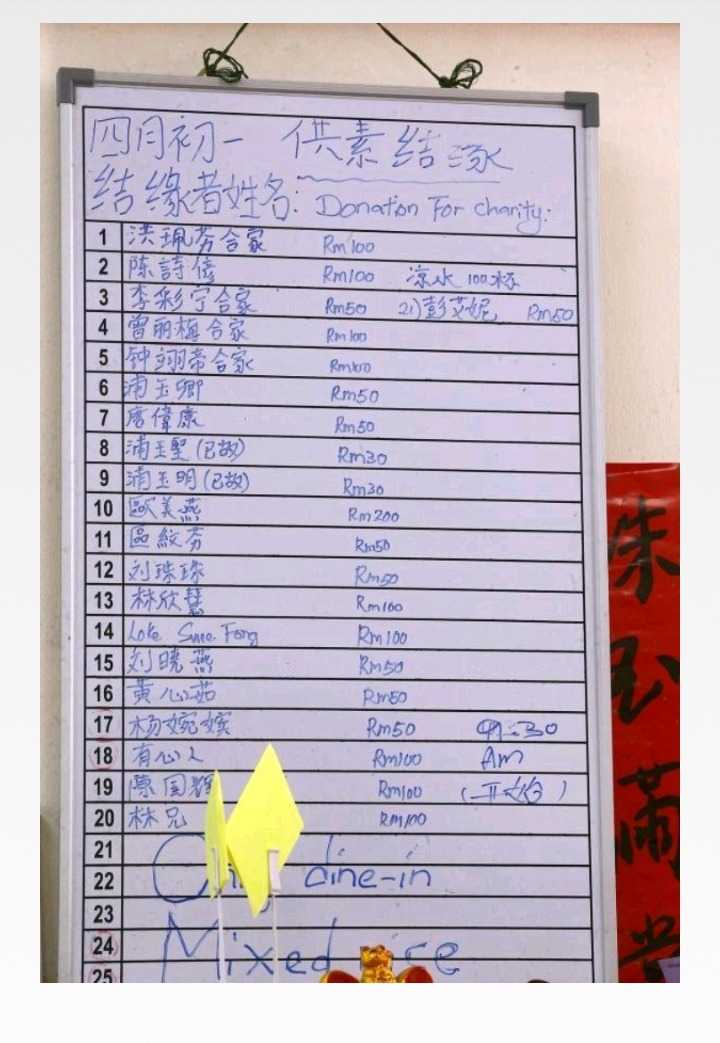 四月初一 供素结缘
结缘者姓名: Donation For charity:
1 洪珮芬合家 Rm100
2 陈詩倩 Rm100 凉水 100杯
3 李彩宁合家 Rm50 21)彭艾妮 Rm50
4 曾丽梅合家 Rm100
5 钟翊帝合家 Rm100
6 浦玉卿 Rm50
7 唐偉康 Rm50
8 浦玉聖(已故) Rm30
9 浦玉明(已故) Rm30
10 歐美燕 Rm200
11 區紋芬 Rm50
12 刘珠珠 Rm50
13 林欣慧 Rm100
14 Loke Fong Rm100
15 刘晓燕 Rm50
16 黄心茹 Rm50
17 杨婉嫔 Rm50 9:30
18 有心人 Rm100 Am
19 国辉 Rm100 (开始)
20 林兄 Rm100
21
22 dine-in
23
24 Mixed
25
朱
玉
满
堂